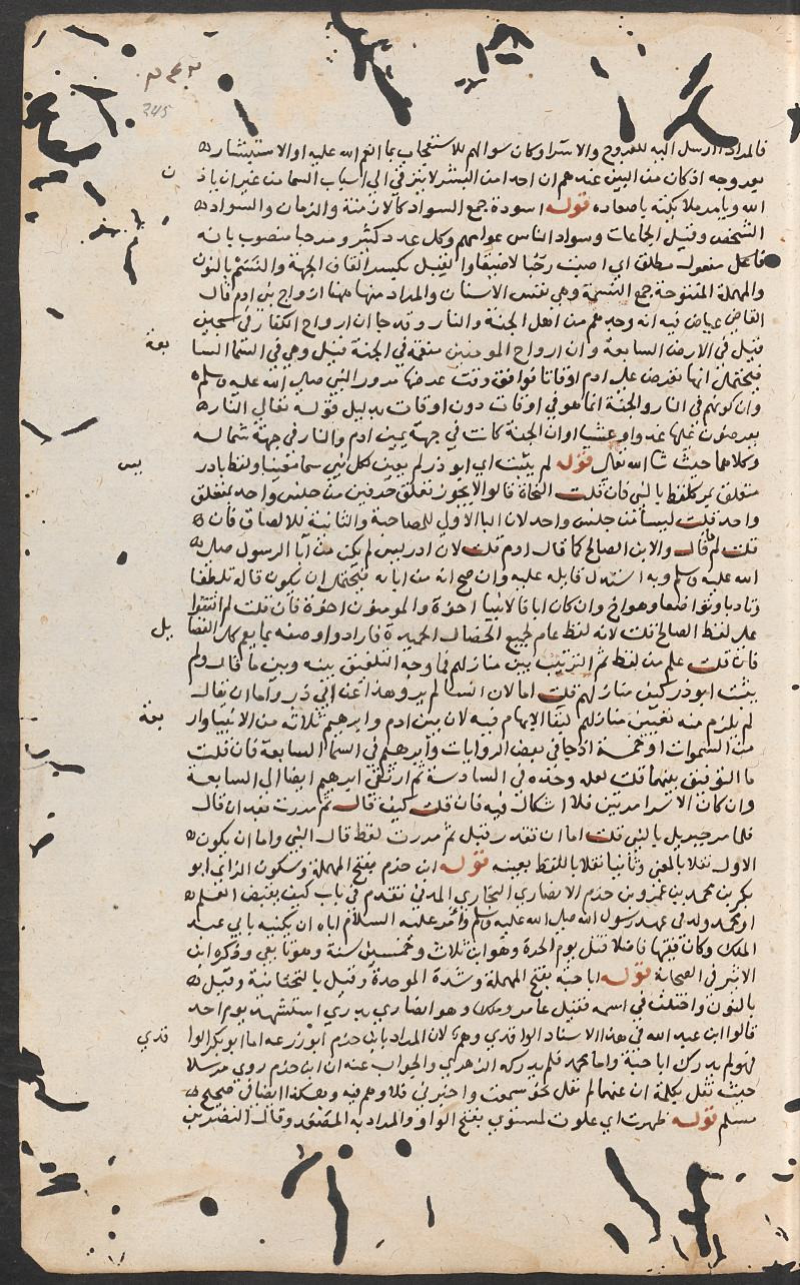 ٣٤٢
345
فالمراد ارسل اليه للعروج والاسرا وكان سوالهم للاستعجاب بما انعم الله عليه او الاستبشار
بعروجه اذ كان من البين عندهم ان احدا من البشر لا يترقي الي اسباب السما من غير ان ياذن
الله ويامر ملايكته باصعاده قوله اسودة جمع السواد كالازمنة والزمان والسواد
الشخص وقيل الجماعات وسواد الناس عوامهم وكل عدد كثير ومرحبا منصوب بانه
مفعول مطلق اي اصبت رحبا لا ضيقا والقبل بكسر القاف الجهة والنسم بالنون
والمهملة المفتوحة جمع النسمة وهي نفس الانسان والمراد منها ههنا ارواح بني ادم قال
القاضي عياض فيه انه وجدهم من اهل الجنة والنار وقد جا ان ارواح الكفار في سجين
قيل في الارض السابعة وان ارواح المومنين منعمة في الجنة قيل وهي في السما السابعة
فيحتمل انها تعرض علي ادم اوقاتا فوافق وقت عرضها مرور النبي صلي الله عليه وسلم
وان كونهم في النار والجنة انما هو في اوقات دون اوقات بدليل قوله تعالي النار
يعرضون عليها غدوا وعشيا او ان الجنة كانت في جهة يمين ادم والنار في جهة شماله
وكلاهما حيث شا الله تعالي قوله لم يثبت اي ابو ذر لم يعين لكل نبي سما معينا ولفظ بادريس
متعلق بمر كلفظ بالنبي فان قلت النحاة قالوا لا يجوز تعلق حرفين من جنس واحد بمتعلق
واحد قلت ليسا من جنس واحد لان البا الاولي للمصاحبة والثانية للالصاق فان
قلت لم قال والابن الصالح كما قال ادم قلت لان ادريس لم يكن من آبا الرسول صلي
الله عليه وسلم وبه استدل قايله عليه وان صح انه من ابايه فيحتمل ان يكون قاله تلطفا
وتادبا وتواضعا وهو اخ وان كان ابا فالانبيا اخوة والمومنون اخوة فان قلت لم اتفقوا
علي لفظ الصالح قلت لانه لفظ عام لجميع الخصال الحميدة فارادوا وصفه بما يعم كل الفضايل
فان قلت علم من لفظ ثم الترتيب بين منازلهم فما وجه التلفيق بينه وبين ما قال ولم
يثبت ابو ذر كيف منازلهم قلت اما لان انسا لم يرو هذا عن ابي ذر واما ان يقال
لم يلزم منه تعيين منازلهم لبقا الابهام فيه لان بين ادم وابرهيم ثلاثه من الانبيا واربعة
من السموات او خمسة اذ جا في بعض الروايات وابرهيم في السما السابعة فان قلت
ما التوفيق بينهما قلت لعله وجده في السادسة ثم ارتقي ابرهيم ايضا الي السابعة
وان كان الاسرا مرتين فلا اشكال فيه فان قلت كيف قال ثم مررت بعد ان قال
فلما مر جبريل بالنبي قلت اما ان تقدر قيل ثم مررت لفظ قال النبي واما ان يكون
الاول نقلا بالمعني وثانيا نقلا باللفظ بعينه قوله ابن حزم بفتح المهملة وسكون الزاي ابو
بكر بن محمد بن عمرو بن حزم الانصاري البخاري المدني تقدم في باب كيف يقبض العلم
او محمد ولد في عهد رسول الله صلي الله عليه وسلم وامر عليه السلام اباه ان يكنيه بابي عبد
الملك وكان فقيها فاضلا قتل يوم الحرة وهو ابن ثلاث وخمسين سنة وهو تابعي وذكره ابن
الاثير في الصحابة قوله ابا حبة بفتح المهملة وشدة الموحدة وقيل بالتحتانية وقيل
بالنون واختلف في اسمه فقيل عامر ومالك وهو انصاري بدري استشهد يوم احد
قالوا ابن عبد الله في هذا الاسناد الواقدي وهم لان المراد بابن حزم ابو زرعه اما ابو بكر الواقدي
فهو لم يدرك ابا حبة واما محمد فلم يدركه الزهري والجواب عنه ان ابن حزم روي مرسلا
حيث نقل بكلمة ان عنهما لم نقل نحو سمعت واخبرني فلا وهم فيه وهكذا ايضا في صحيح
مسلم قوله ظهرت اي علوت لمستوي بفتح الواو والمراد به المصعد وقال النضر بن